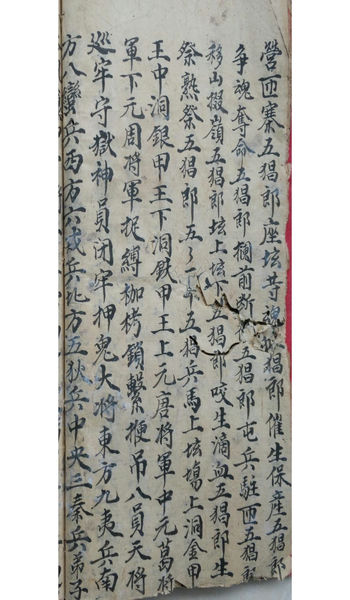 營匝寨五猖郎座坛等魂五猖郎催生保產五猖郎
争魂奪命五猖郎攔前断五猖郎屯兵駐匝五猖郎
移山掇嶺五猖郎坛上坛下五猖郎咬生滴血五猖郎生
祭熟祭五猖郎五五猖兵馬上坛塲上洞金甲
王中洞銀甲王下洞鉄甲王上元唐將軍中元葛將
軍下元周將軍捉縛枷栲鎖繫梗吊八員天將
巡牢守獄神員闭牢押鬼大將東方九夷兵南
方八蠻兵西方六戎兵北方五狄兵中央三秦兵弟子